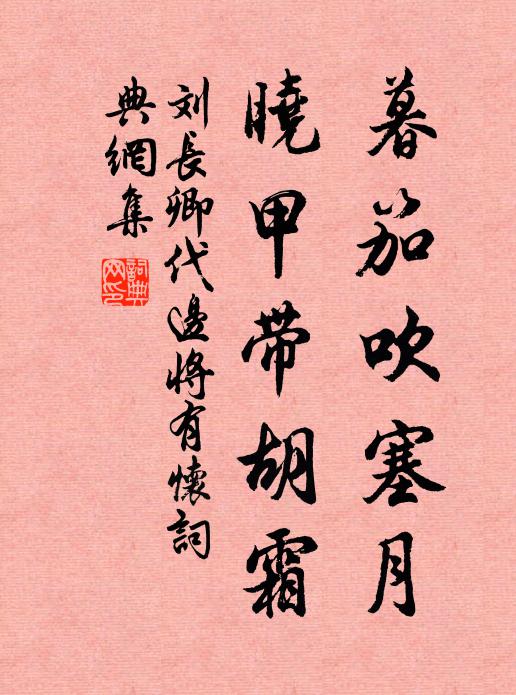 暮笳吹塞月
曉甲帶胡霜
刘長卿代邊將有懷詞
典網集
詞典
网印